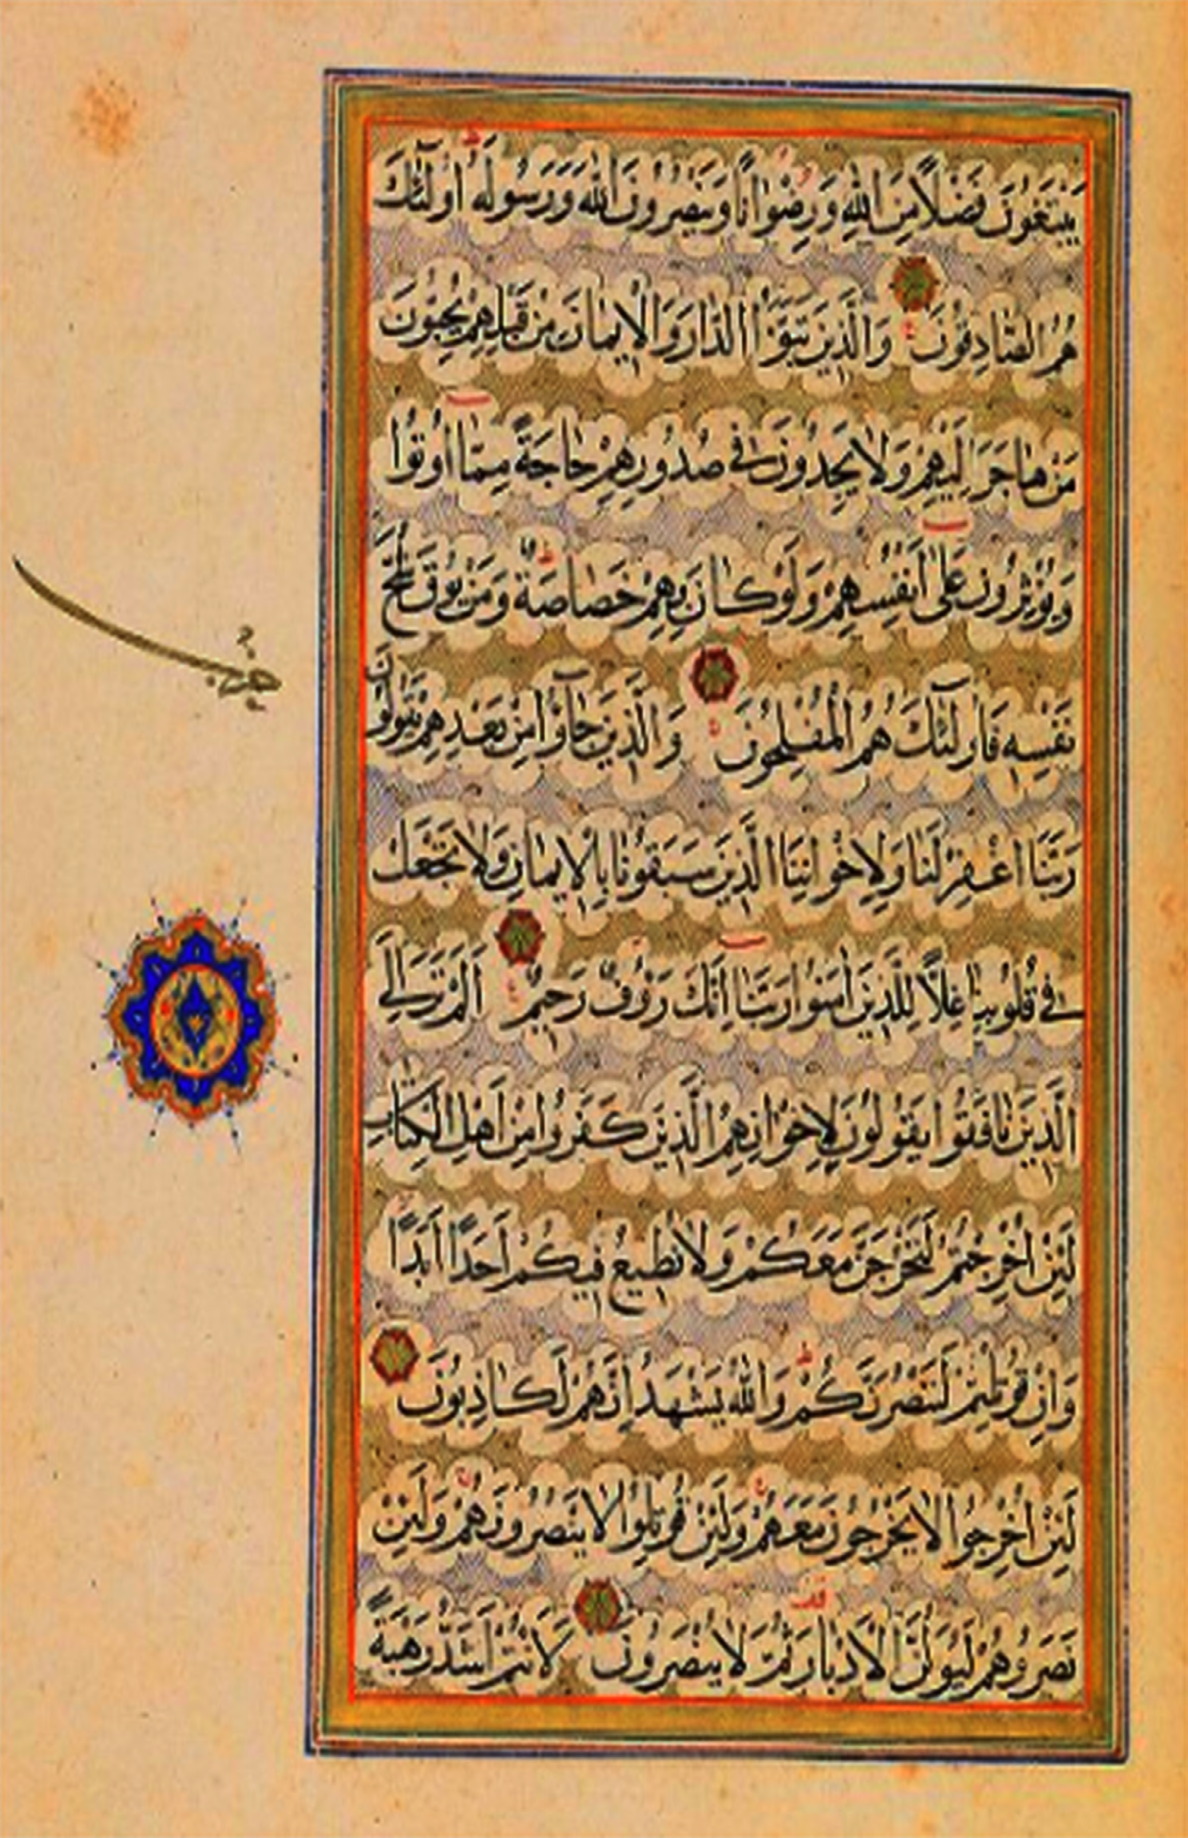 يَبْتَغُونَ فَضْلًا مِنَ اللّٰهِ وَرِضْوَانًا وَيَنْصُرُونَ اللّٰهَ وَرَسُولَهُ اُولٰٓئِكَ
هُمُ الصَّادِقُونَ وَالَّذِينَ تَبَوَّؤُا الدَّارَ وَالْاِيمَانَ مِنْ قَبْلِهِمْ يُحِبُّونَ
مَنْ هَاجَرَ اِلَيْهِمْ وَلَا يَجِدُونَ فِي صُدُورِهِمْ حَاجَةً مِمَّا اُوتُوا
وَيُؤْثِرُونَ عَلٰى اَنْفُسِهِمْ وَلَوْ كَانَ بِهِمْ خَصَاصَةٌ وَمَنْ يُوقَ شُحَّ
نَفْسِهِ فَاُولٰٓئِكَ هُمُ الْمُفْلِحُونَ وَالَّذِينَ جَآؤُا مِنْ بَعْدِهِمْ يَقُولُونَ
رَبَّنَا اغْفِرْ لَنَا وَلِاِخْوَانِنَا الَّذِينَ سَبَقُونَا بِالْاِيمَانِ وَلَا تَجْعَلْ
فِي قُلُوبِنَا غِلًّا لِلَّذِينَ اٰمَنُوا رَبَّنَا اِنَّكَ رَؤُفٌ رَحِيمٌ اَلَمْ تَرَ اِلَى
الَّذِينَ نَافَقُوا يَقُولُونَ لِاِخْوَانِهِمُ الَّذِينَ كَفَرُوا مِنْ اَهْلِ الْكِتَابِ
لَئِنْ اُخْرِجْتُمْ لَنَخْرُجَنَّ مَعَكُمْ وَلَا نُطِيعُ فِيكُمْ اَحَدًا اَبَدًا
وَاِنْ قُوتِلْتُمْ لَنَنْصُرَنَّكُمْ وَاللّٰهُ يَشْهَدُ اِنَّهُمْ لَكَاذِبُونَ
لَئِنْ اُخْرِجُوا لَا يَخْرُجُونَ مَعَهُمْ وَلَئِنْ قُوتِلُوا لَا يَنْصُرُونَهُمْ وَلَئِنْ
نَصَرُوهُمْ لَيُوَلُّنَّ الْاَدْبَارَ ثُمَّ لَا يُنْصَرُونَ لَاَنْتُمْ اَشَدُّ رَهْبَةً
حزب